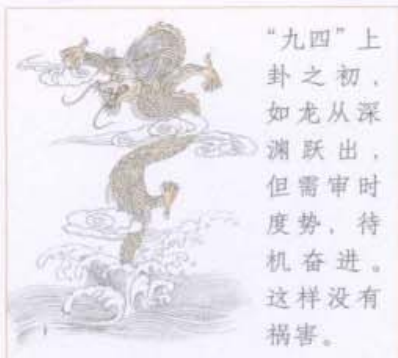 “九四”上
卦之初，
如龙从深
渊跃出，
但需审时
度势，待
机奋进。
这样没有
祸害。